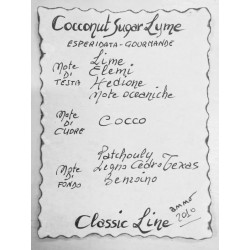 Cocconut Sugar Lyme
ESPERIDATA-GOURMANDE
Note DI TESTA
Lime
Elemi
Hedione
Note oceaniche
Note DI CUORE
COCCO
Note DI FONDO
Patchouly
Legno Cedro Texas
Benzoino
Classic Line
anno 2010